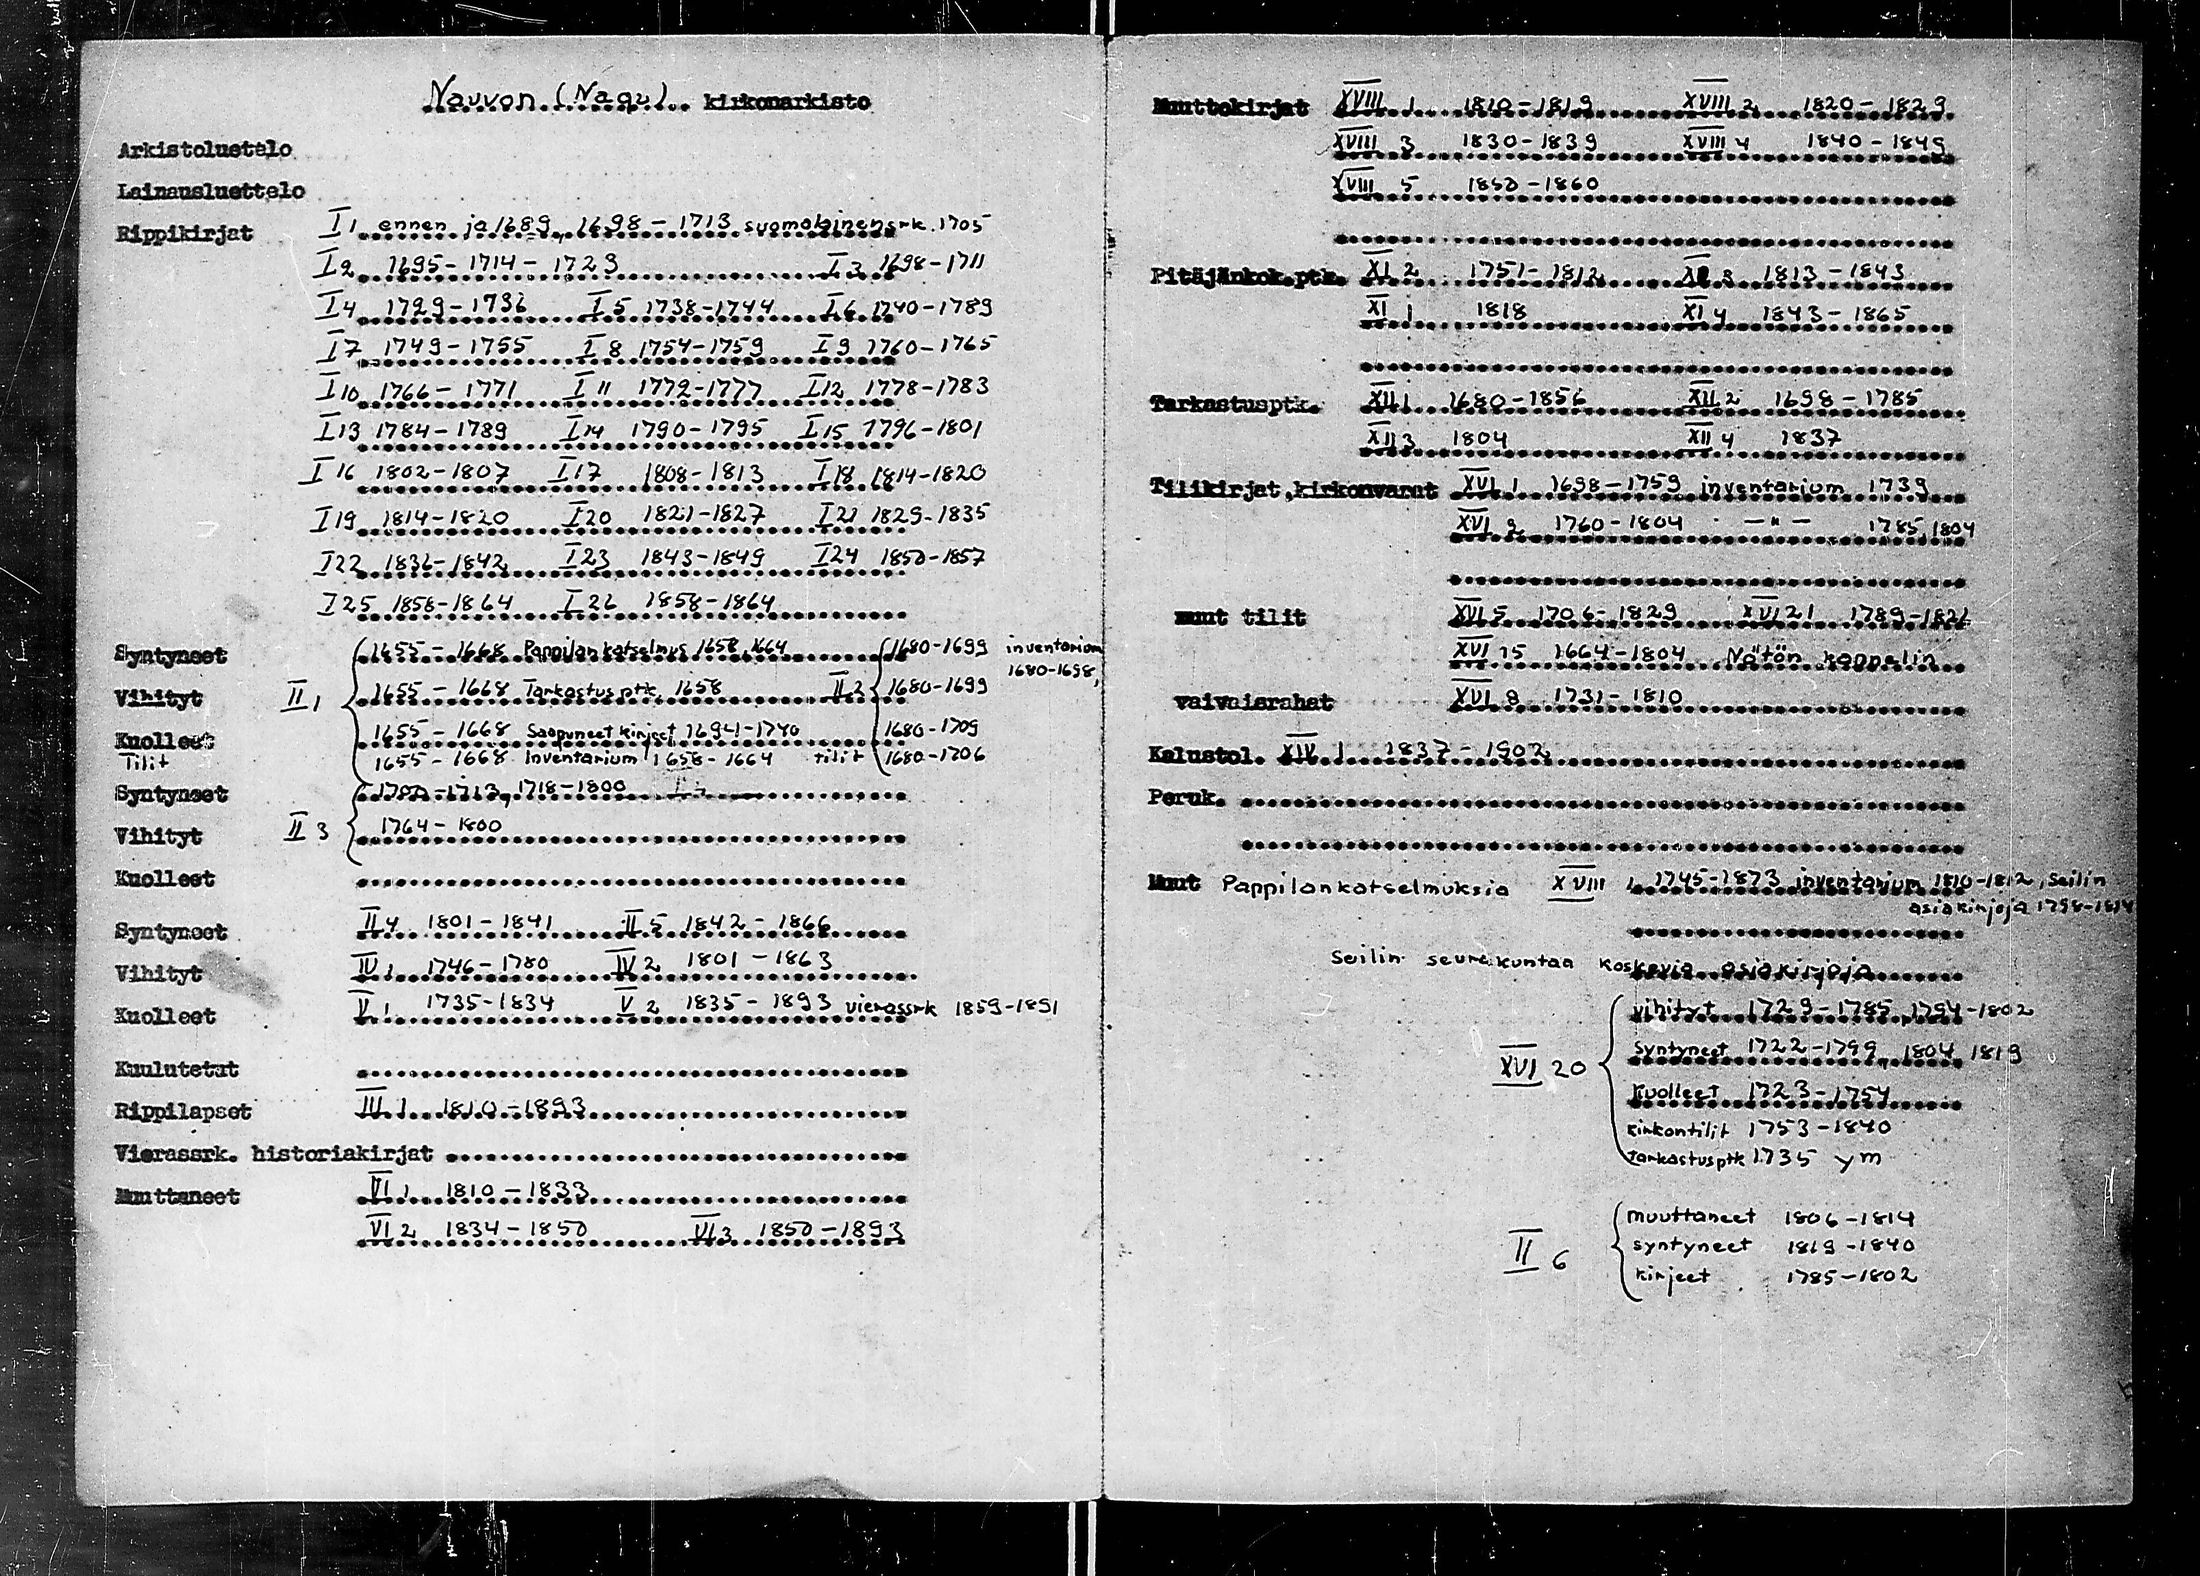 Nauvon (Nagu) kirkonarkisto
Arkistoluetelo
Lainausluettelo
Rippikirjat I 1 ennen ja 1689, 1698-1713 suomalainen srk. 1705
I 2 1695-1714-1723 I 3 1698-1711
I 4 1729-1736 I 5 1738-1744 I 6 1740-1789
I 7 1749-1755 I 8 1754-1759 I 9 1760-1765
I 10 1766-1771 I 11 1772-1777 I 12 1778-1783
I 13 1784-1789 I 14 1790-1795 I 15 1796-1801
I 16 1802-1807 I 17 1808-1813 I 18 1814-1820
I 19 1814-1820 I 20 1821-1827 I 21 1829-1835
I 22 1836-1842 I 23 1843-1849 I 24 1850-1857
I 25 1858-1864 I 26 1858-1864
Syntyneet 1655-1668 Pappilan katselmus 1658, 1664 1680-1699 inventarium
1680-1698,
Vihityt II 1 1655-1668 Tarkastusptk. 1658 II 2 1680-1699
Kuolleet 1655-1668 Saapuneet kirjeet 1694-1740 1680-1709
Tilit 1655-1668 Inventarium 1658-1664 tilit 1680-1706
Syntyneet 1700-1713, 1718-1800
Vihityt II 3 1764-1800
Kuolleet
Syntyneet II 4 1801-1841 II 5 1842-1866
Vihityt IV 1 1746-1780 IV 2 1801-1863
Kuolleet V 1 1735-1834 V 2 1835-1893 vierassrk 1859-1891
Kuulutetut
Rippilapset III 1 1810-1893
Vierassrk. historiakirjat
Muuttaneet VI 1 1810-1833
VI 2 1834-1850 VI 3 1850-1893
Muuttokirjat XVIII 1 1810-1819 XVIII 2 1820-1829
XVIII 3 1830-1839 XVIII 4 1840-1849
XVIII 5 1850-1860
Pitäjänkok.ptk. XI 2 1751-1812 XI 3 1813-1843
XI 1 1818 XI 4 1843-1865
Tarkastusptk. XII 1 1680-1856 XII 2 1698-1785
XII 3 1804 XII 4 1837
Tilikirjat, kirkonvarat XVI 1 1698-1759 inventarium 1739
XVI 2 1760-1804 -"- 1785, 1804
muut tilit XVI 5 1706-1829 XVI 21 1789-1826
XVI 15 1664-1804 Nötön kappelin
vaivaisrahat XVI 8 1731-1810
Kalustol. XIV 1 1837-1902
Peruk.
Muut Pappilankatselmuksia XVIII 1 1745-1873 inventarium 1810-1812, Seilin
asiakirjoja 1758-1814
Seilin seurakuntaa koskevia asiakirjoja
vihityt 1729-1785, 1794-1802
syntyneet 1722-1799, 1804, 1819
XVI 20
kuolleet 1723-1754
kirkontilit 1753-1840
tarkastusptk 1735 ym
muuttaneet 1806-1814
II 6 syntyneet 1819-1840
kirjeet 1785-1802